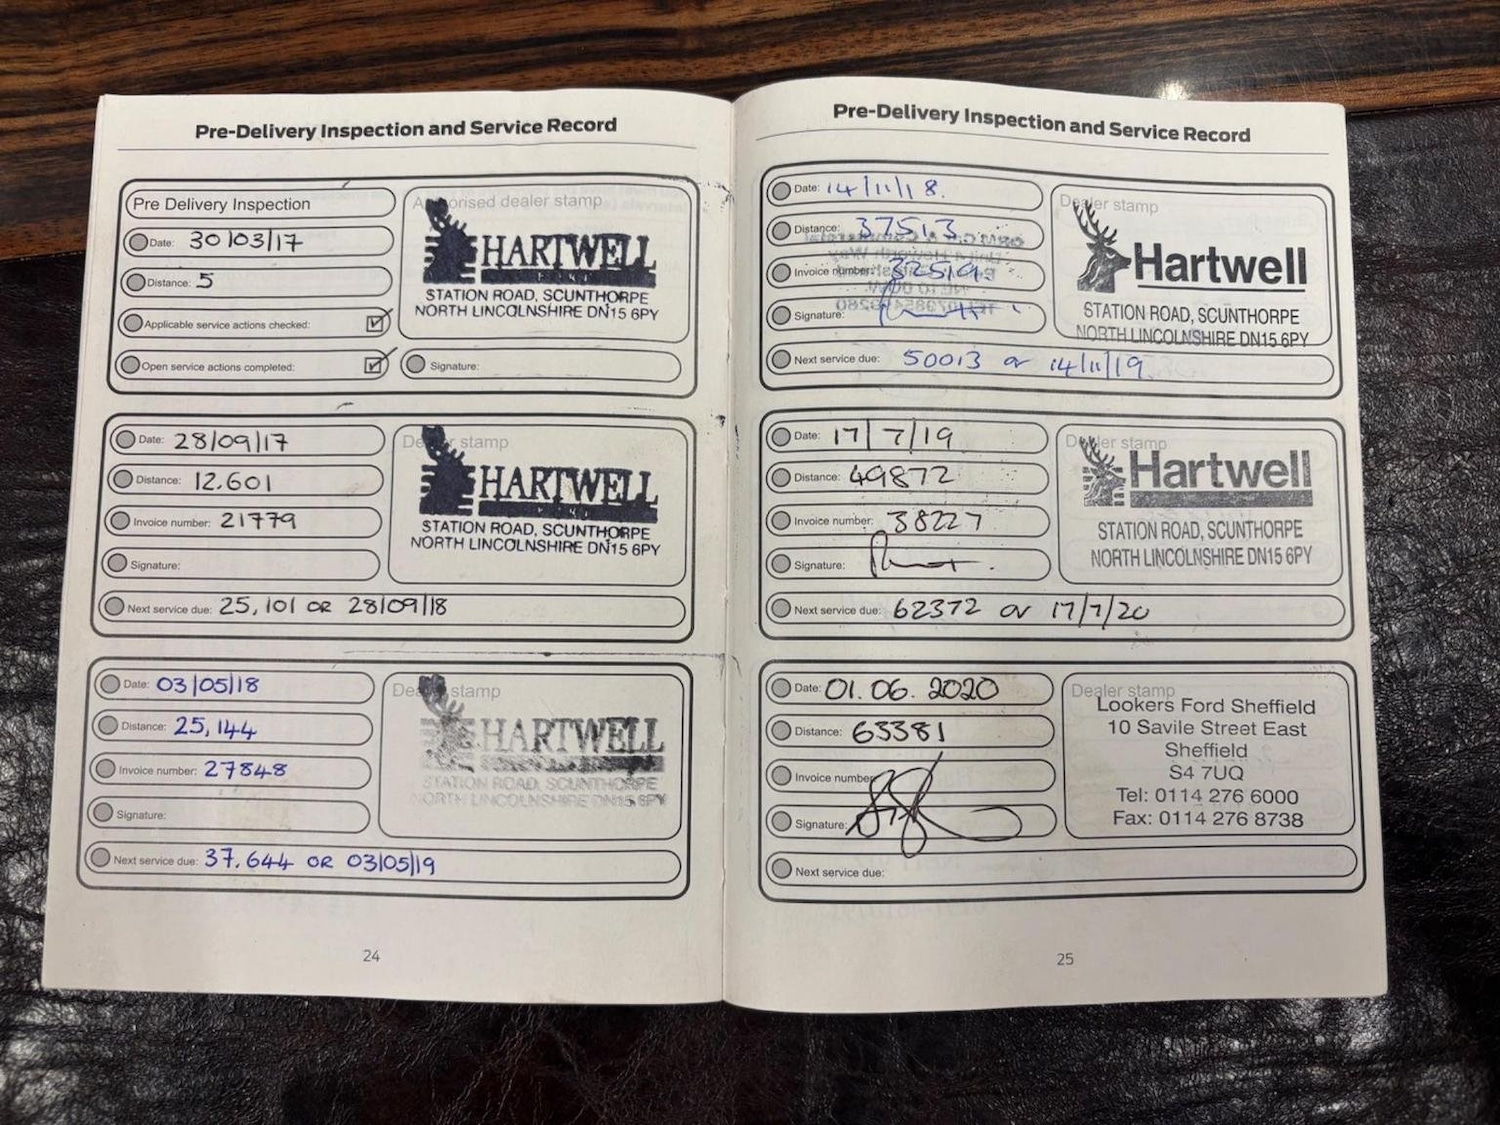 Pre-Delivery Inspection and Service Record
Pre Delivery Inspection
Date: 30/03/17
Distance: 5
Applicable service actions checked:
Open service actions completed:
Authorised dealer stamp
HARTWELL
STATION ROAD, SCUNTHORPE
NORTH LINCOLNSHIRE DN15 6PY
Signature:
Date: 28/09/17
Distance: 12.601
Invoice number: 21779
Signature:
Dealer stamp
HARTWELL
STATION ROAD, SCUNTHORPE
NORTH LINCOLNSHIRE DN15 6PY
Next service due: 25,101 OR 28/09/18
Date: 03/05/18
Distance: 25,144
Invoice number: 27848
Signature:
Dealer stamp
HARTWELL
STATION ROAD, SCUNTHORPE
NORTH LINCOLNSHIRE DN15 6PY
Next service due: 37.644 OR 03/05/19
24
Pre-Delivery Inspection and Service Record
Date: 14/11/18.
Distance: 37513
Invoice number:
Signature:
Dealer stamp
Hartwell
STATION ROAD, SCUNTHORPE
NORTH LINCOLNSHIRE DN15 6PY
Next service due: 50013 or 14/11/19
Date: 17/7/19
Distance: 49872
Invoice number: 38227
Signature:
Dealer stamp
Hartwell
STATION ROAD, SCUNTHORPE
NORTH LINCOLNSHIRE DN15 6PY
Next service due: 62372 or 17/7/20
Date: 01.06.2020
Distance: 63381
Invoice number:
Signature:
Dealer stamp
Lookers Ford Sheffield
10 Savile Street East
Sheffield
S4 7UQ
Tel: 0114 276 6000
Fax: 0114 276 8738
Next service due:
25